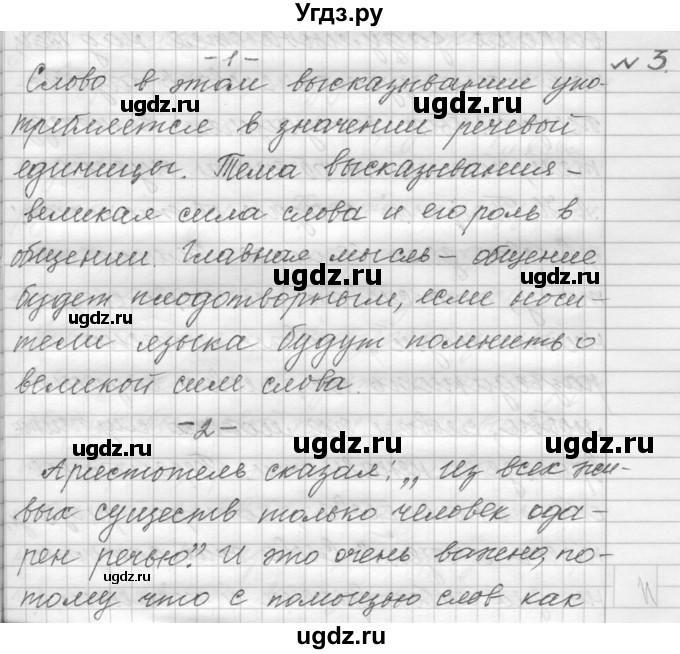 Угдз.ру
-1-
№3.
Слово в этом высказывании упо-
требляется в значении речевой
единицы. Тема высказывания -
великая сила слова и его роль в
общении. Главная мысль - общение
будет плодотворным, если носи-
тели языка будут помнить о
великой силе слова.
-2-
Аристотель сказал: „Из всех жи-
вых существ только человек ода-
рен речью". И это очень важно, по-
тому что с помощью слов как
ugdz.ru
ugdz.ru
ugdz.ru
ugdz.ru
ugdz.ru
ugdz.ru
ugdz.ru
ugdz.ru
ugdz.ru
ugdz.ru
ugdz.ru
ugdz.ru
ugdz.ru
ugdz.ru